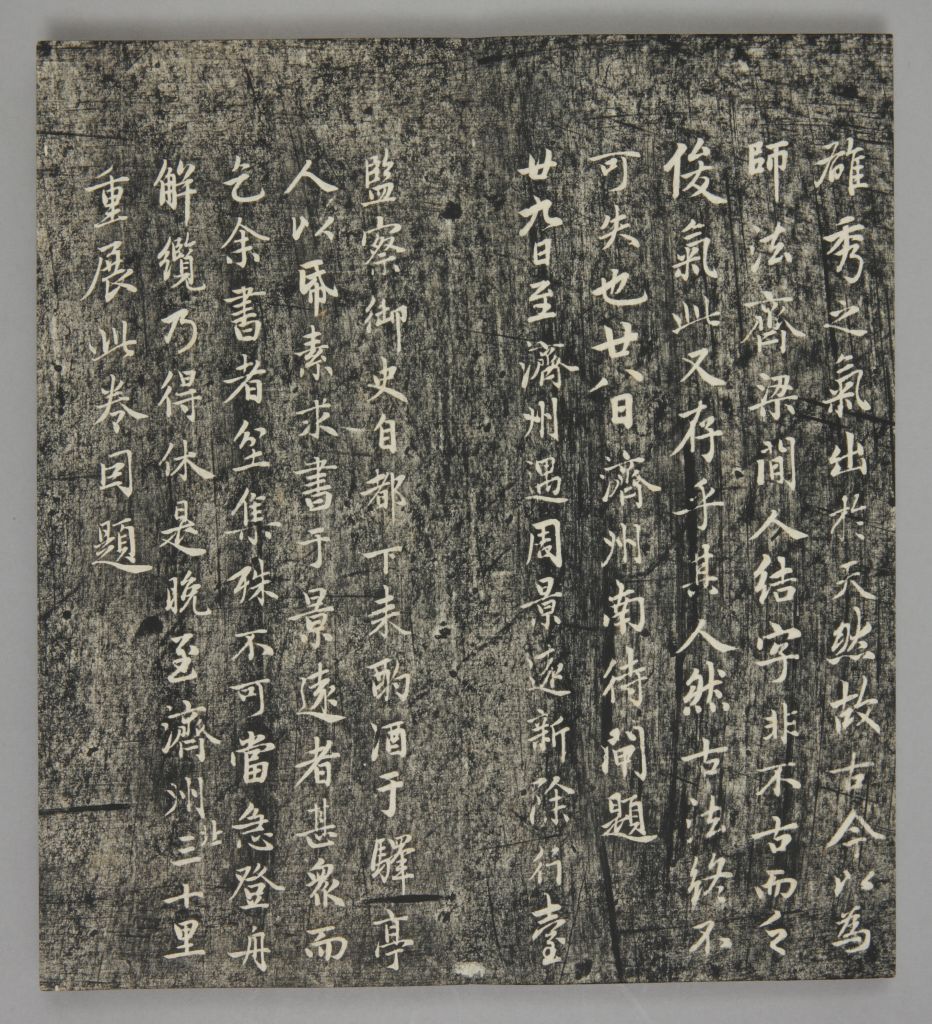 雄秀之氣出於天然故古今以為
師法齊梁間人結字非不古而乏
俊氣此又存乎其人然古法終不
可失也廿八日濟州南待閘題
廿九日至濟州遇周景遠新除行臺
監察御史自都下来酌酒于驛亭
人以帋素求書于景遠者甚衆而
乞余書者坌集殊不可當急登舟
解纜乃得休是晚至濟州北三十里
重展此卷因題